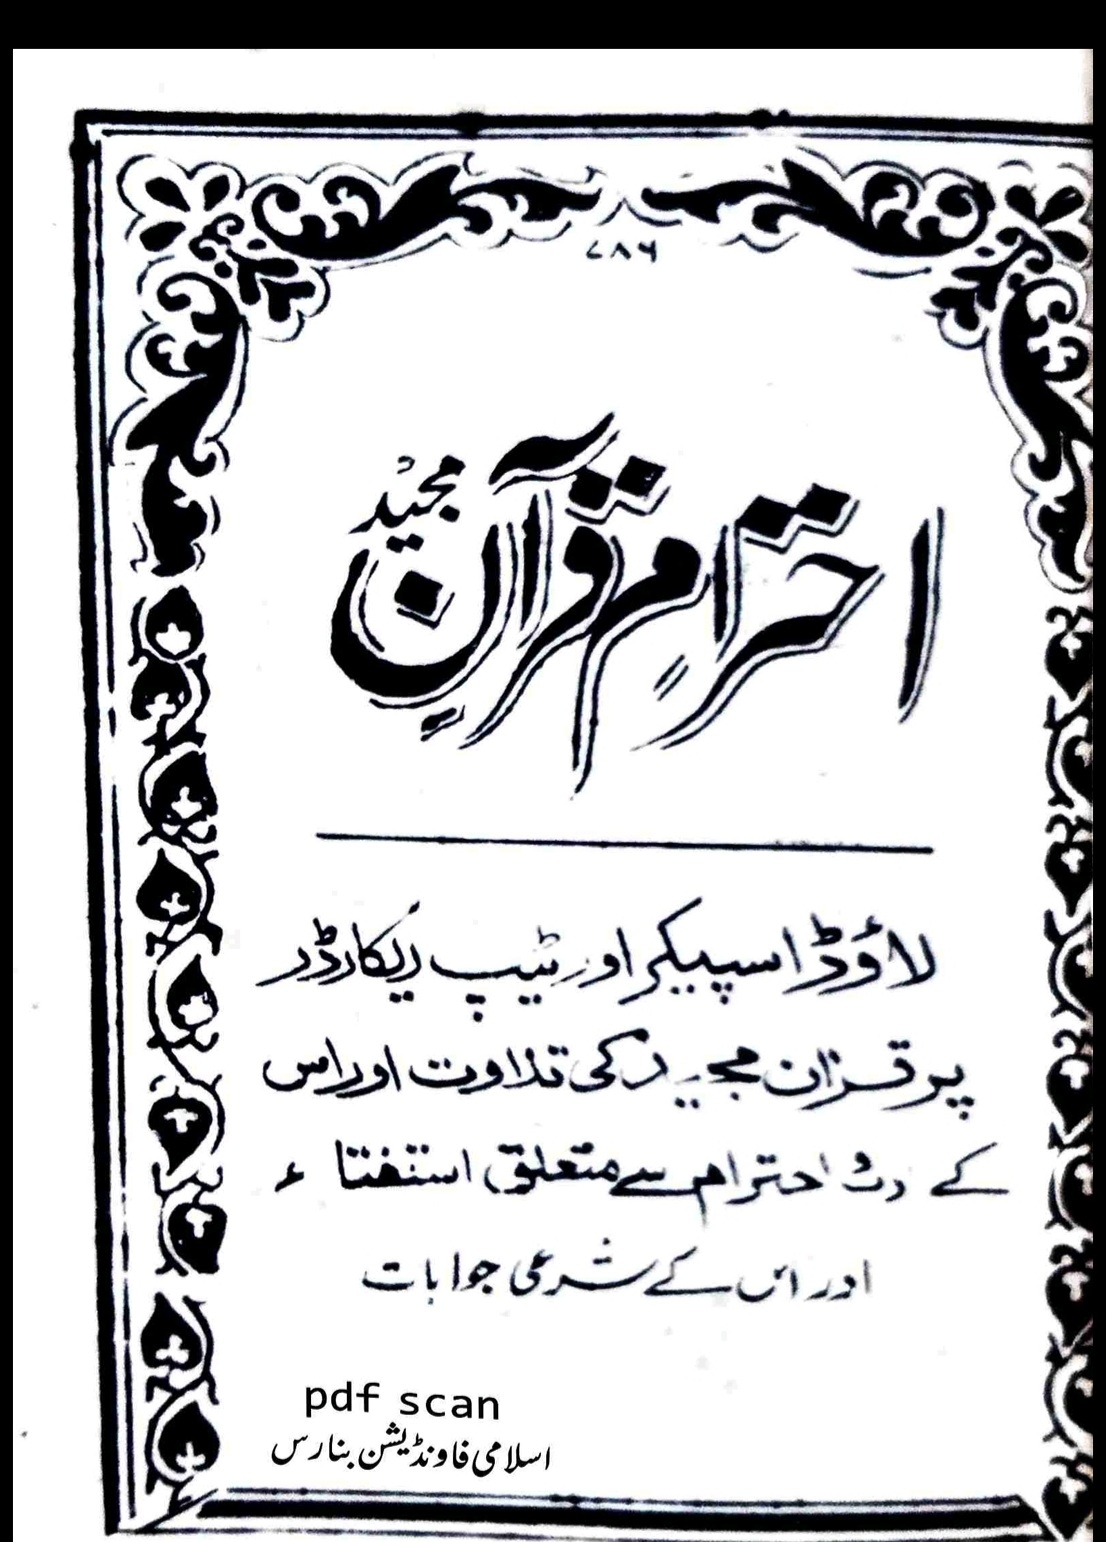 ۷۸۶
احترامِ قرآنِ مجید
لاؤڈ اسپیکر اور ٹیپ ریکارڈر
پر قرآن مجید کی تلاوت اور اس
کے احترام سے متعلق استفتاء
اور اس کے شرعی جوابات
pdf scan
اسلامی فاونڈیشن بنارس